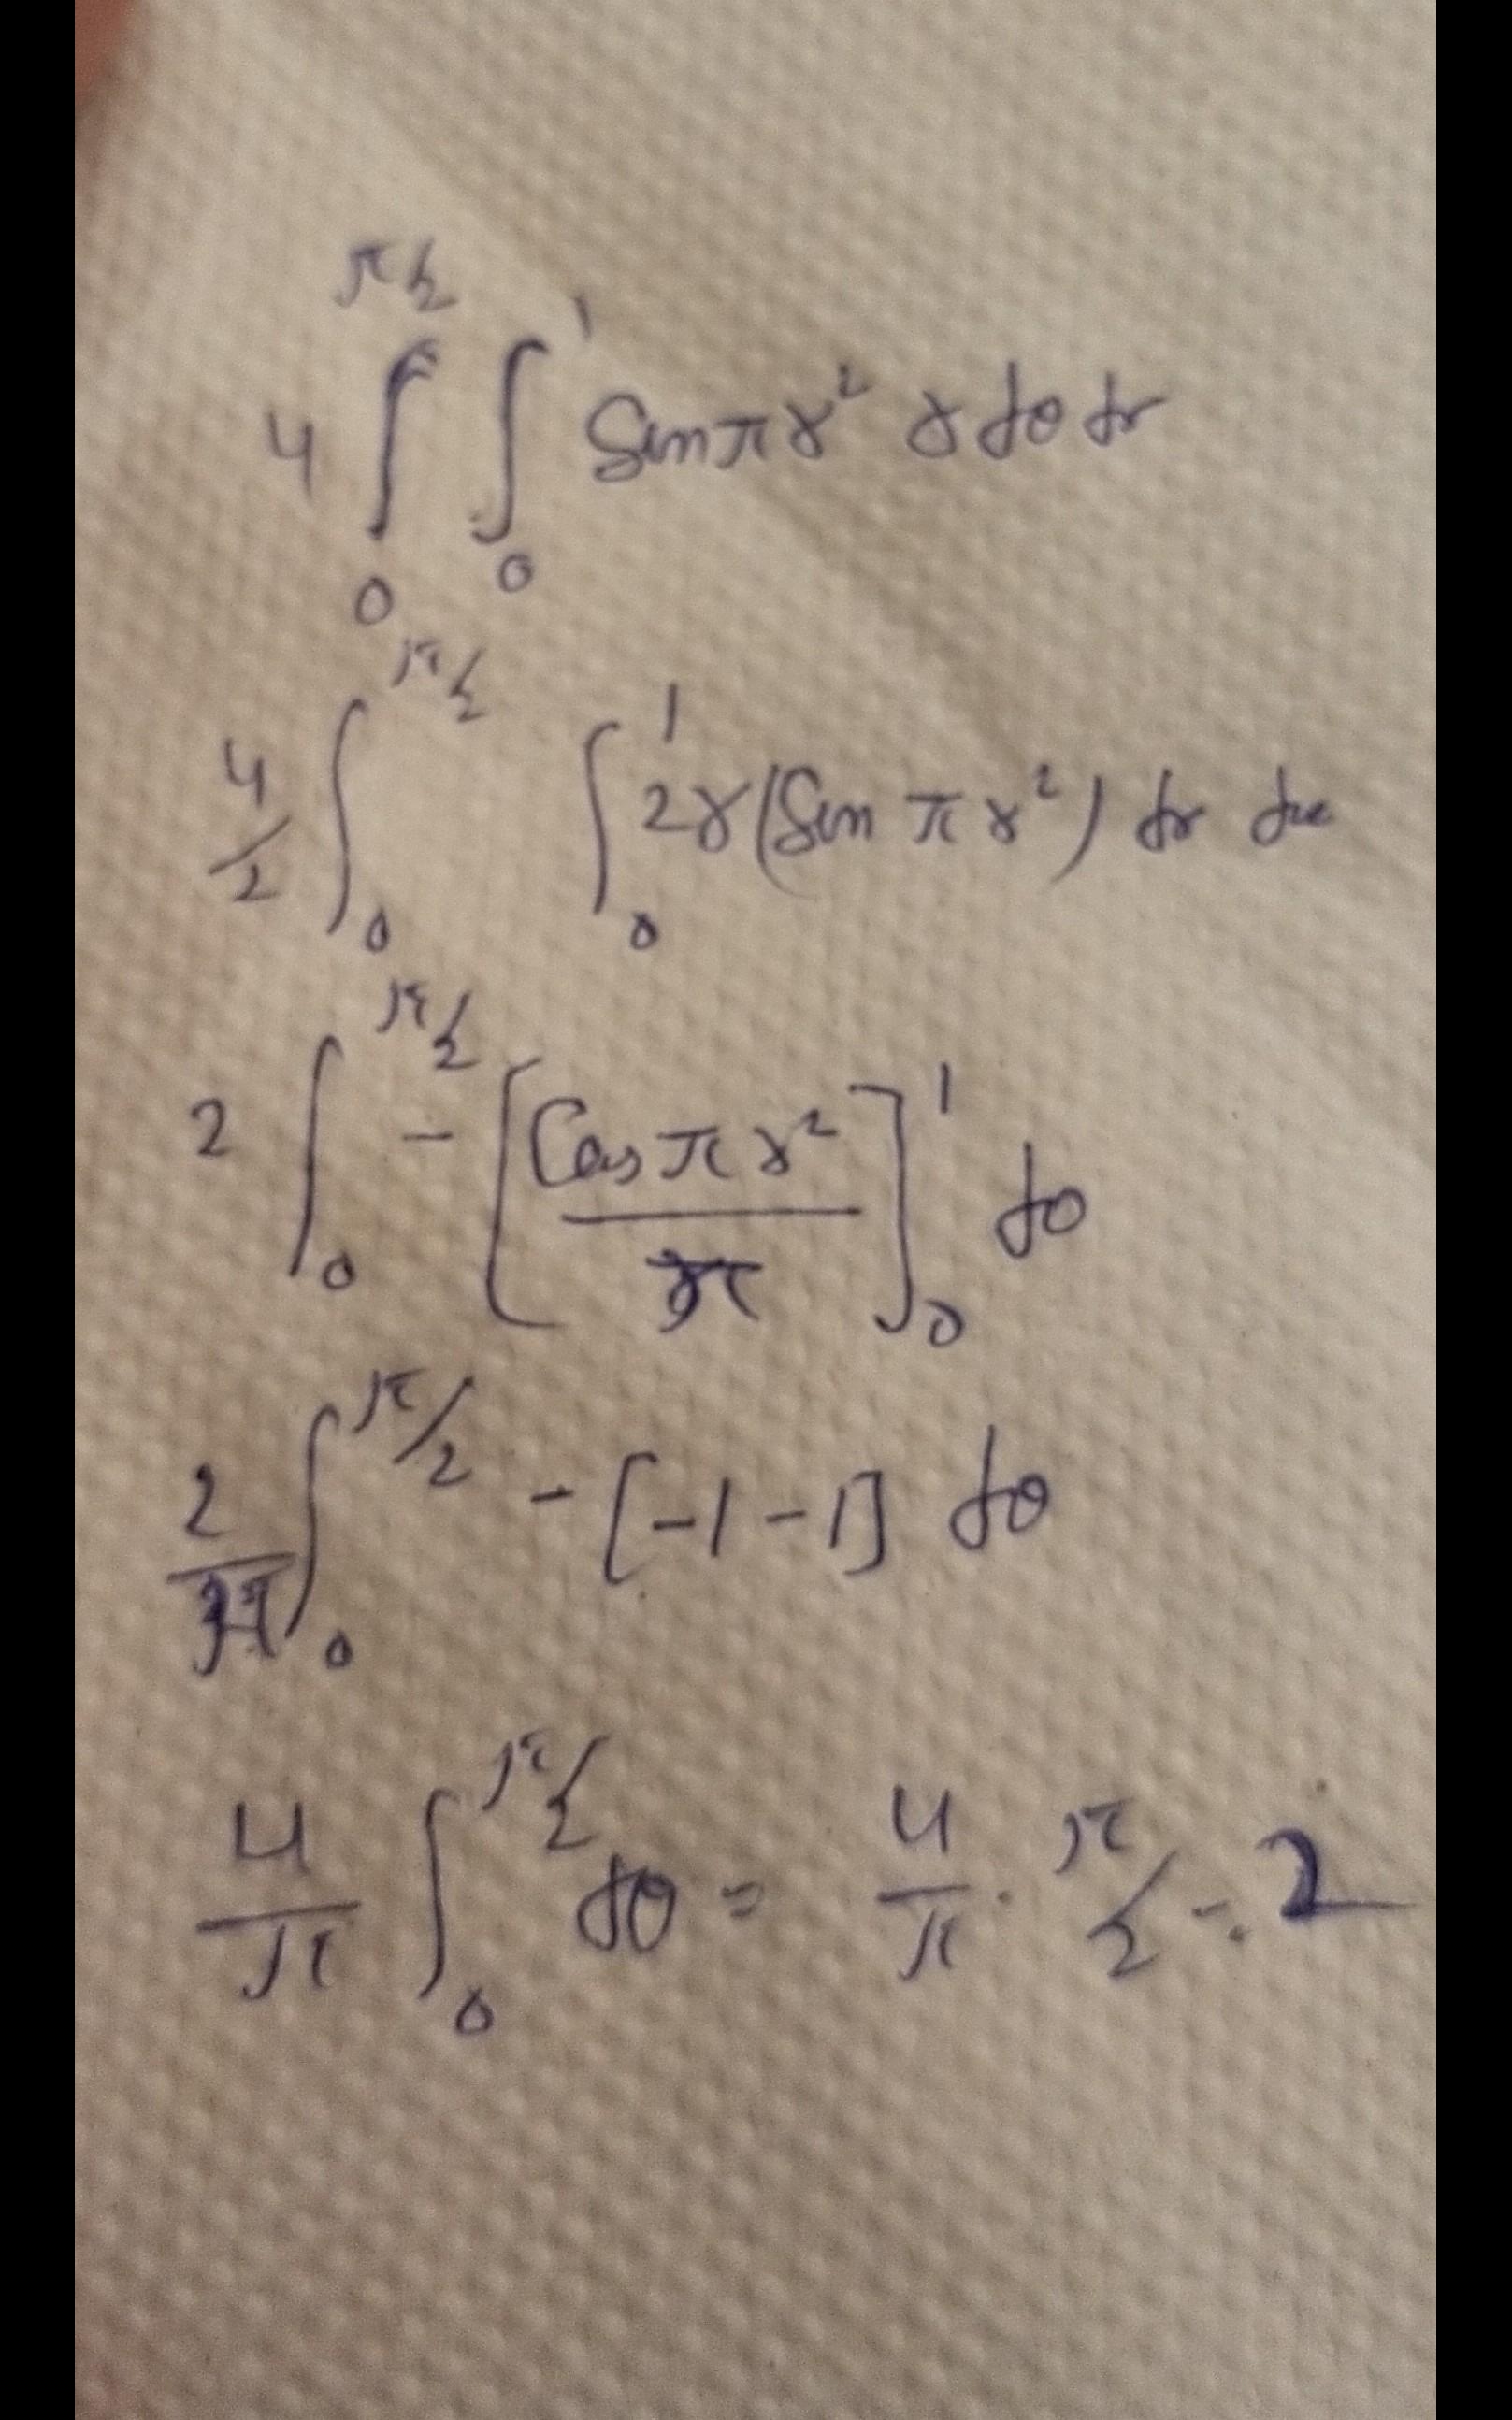 4 ∫₀^{π/2} ∫₀^1 Sin πr² r dθ dr
4/2 ∫₀^{π/2} ∫₀^1 2r (Sin π r²) dr
2 ∫₀^{π/2} - [Cos π r² / π]₀^1 dθ
2/π ∫₀^{π/2} - [-1 - 1] dθ
4/π ∫₀^{π/2} dθ = 4/π · π/2 = 2